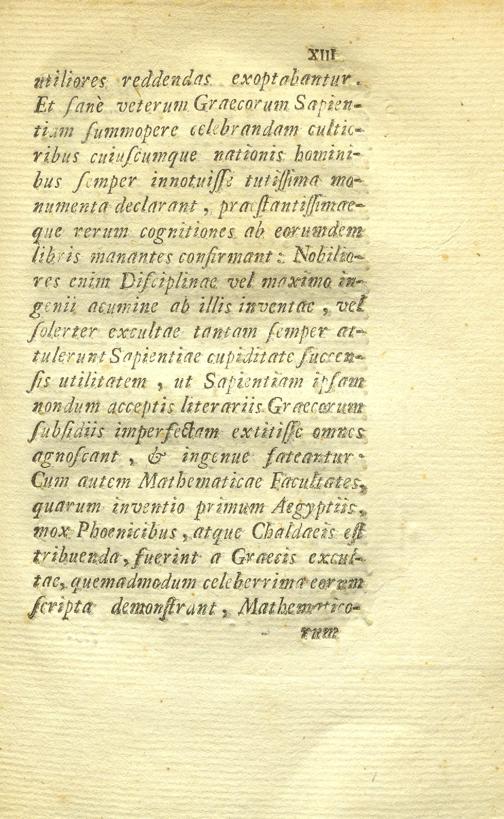 XIII
utiliores reddendas exoptabantur.
Et ſanè veterum Graecorum Sapien-
tiam ſummopere celebrandam cultio-
ribus cuiuſcumque nationis homini-
bus ſemper innotuiſſe tutiſſima mo-
numenta declarant, praeſtantiſſimae-
que rerum cognitiones ab eorumdem
libris manantes confirmant: Nobilio-
res enim Diſciplinae vel maximo in-
genii acumine ab illis inventae, vel
ſolerter excultae tantam ſemper at-
tulerunt Sapientiae cupiditate ſuccen-
ſis utilitatem, ut Sapientiam ipſam
nondum acceptis literariis Graecorum
ſubſidiis imperfectam extitiſſe omnes
agnoſcant, & ingenue fateantur.
Cum autem Mathematicae Facultates,
quarum inventio primum Aegyptiis,
mox Phoenicibus, atque Chaldaeis eſt
tribuenda, fuerint a Graecis excul-
tae, quemadmodum celeberrima eorum
ſcripta demonſtrant, Mathematico-
rum